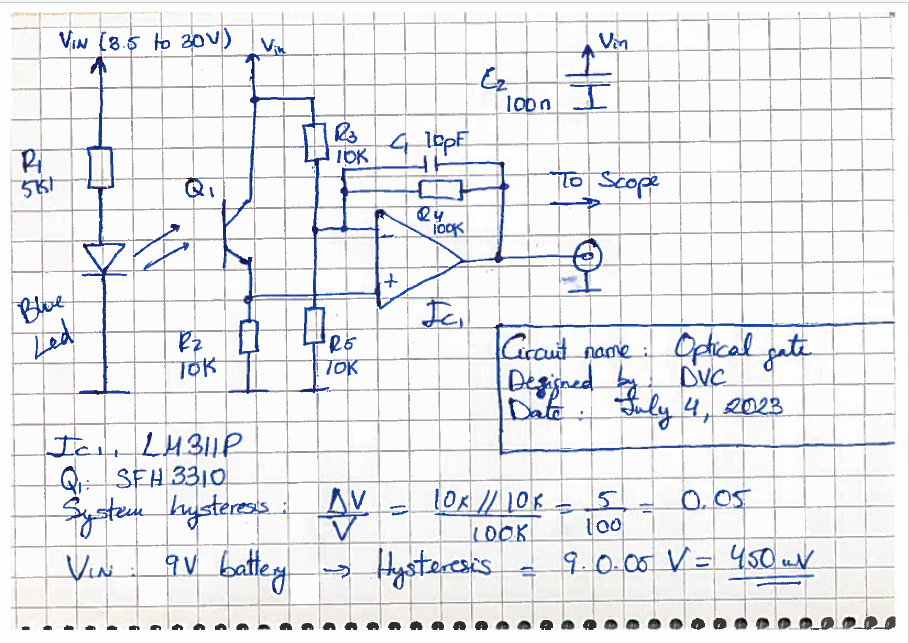 VIN (3.5 to 30V)
Vin
Vin
C2
100n
R1
5K1
Q1
R3
10K
C1 10pF
R4
100K
To Scope
-
+
Ic1
Blue
Led
R2
10K
R5
10K
Circuit name: Optical gate
Designed by: DVC
Date: July 4, 2023
Ic1, LM311P
Q1: SFH3310
System hysteresis: ΔV/V = 10K//10K/100K = 5/100 = 0.05
VIN: 9V battery → Hysteresis = 9.0.05 V = 450 mV